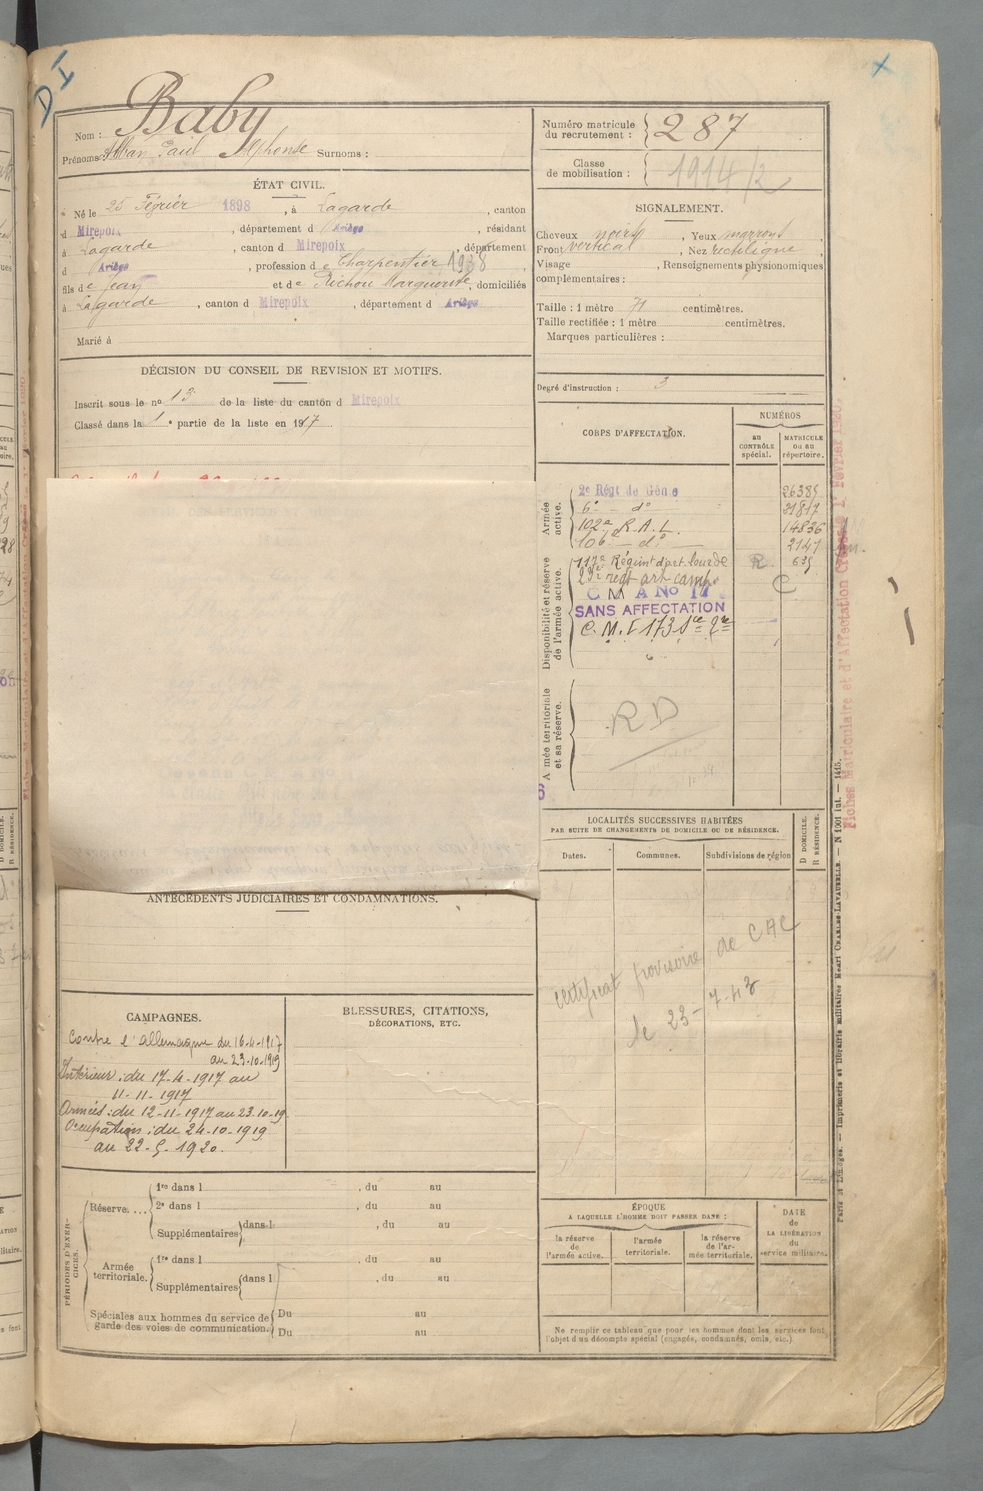 D I
Baby
Nom :
Prénoms : Alban Paul Alphonse Surnoms :
Numéro matricule
du recrutement : 287
Classe
de mobilisation : 1914/2
ÉTAT CIVIL.
Né le 25 Février 1898, à Lagarde, canton
d Mirepoix, département d Ariège, résidant
à Lagarde, canton d Mirepoix, département
d Ariège, profession de Charpentier 1938,
fils de Jean et de Richou Marguerite, domiciliés
à Lagarde, canton d Mirepoix, département d Ariège
Marié à
SIGNALEMENT.
Cheveux noirs, Yeux marrons,
Front vertical, Nez rectiligne,
Visage , Renseignements physionomiques
complémentaires :
Taille : 1 mètre 71 centimètres.
Taille rectifiée : 1 mètre centimètres.
Marques particulières :
Degré d'instruction : 3
DÉCISION DU CONSEIL DE REVISION ET MOTIFS.
Inscrit sous le no 13 de la liste du canton d Mirepoix
Classé dans la 1e partie de la liste en 1917.
CORPS D'AFFECTATION.
NUMÉROS
au
CONTRÔLE
spécial.
MATRICULE
ou au
répertoire.
Armée
active.
2e Régt de Génie 26385
6e — do 21817
102e R.A.L. 14836
106e — do — 2141
Disponibilité et réserve
de l'armée active.
117e Régiment d'art. lourde R 635
23e regt art camp C
C M A No 17
SANS AFFECTATION
C. M. I 173
Armée territoriale
et sa réserve.
RD
LOCALITÉS SUCCESSIVES HABITÉES
PAR SUITE DE CHANGEMENTS DE DOMICILE OU DE RÉSIDENCE.
Dates.
Communes.
Subdivisions de région
D DOMICILE.
R RÉSIDENCE.
certificat provisoire de CAC
le 23-7-42
ANTÉCÉDENTS JUDICIAIRES ET CONDAMNATIONS.
CAMPAGNES.
Contre l'allemagne du 16-4-1917
au 23-10-1919
Intérieur : du 17-4-1917 au
11-11-1917
Armées : du 12-11-1917 au 23.10.19
Occupation : du 24-10-1919
au 22-5-1920.
BLESSURES, CITATIONS,
DÉCORATIONS, ETC.
PÉRIODES D'EXERCICES.
Réserve....
1re dans l , du au
2e dans l , du au
Supplémentaires dans l , du au
Armée
territoriale.
1re dans l , du au
Supplémentaires dans l , du au
Spéciales aux hommes du service de
garde des voies de communication.
Du au
Du au
ÉPOQUE
A LAQUELLE L'HOMME DOIT PASSER DANS :
la réserve
de
l'armée active.
l'armée
territoriale.
la réserve
de l'armée territoriale.
DATE
de
LA LIBÉRATION
du
service militaire.
Ne remplir ce tableau que pour les hommes dont les services font
l'objet d'un décompte spécial (engagés, condamnés, omis, etc.).
Paris et Limoges. — Imprimerie et librairie militaires Henri CHARLES-LAVAUZELLE. — N 1001 int. — 1415.
Fiches Matriculaire et d'Affectation Créées le 1er Février 1920.